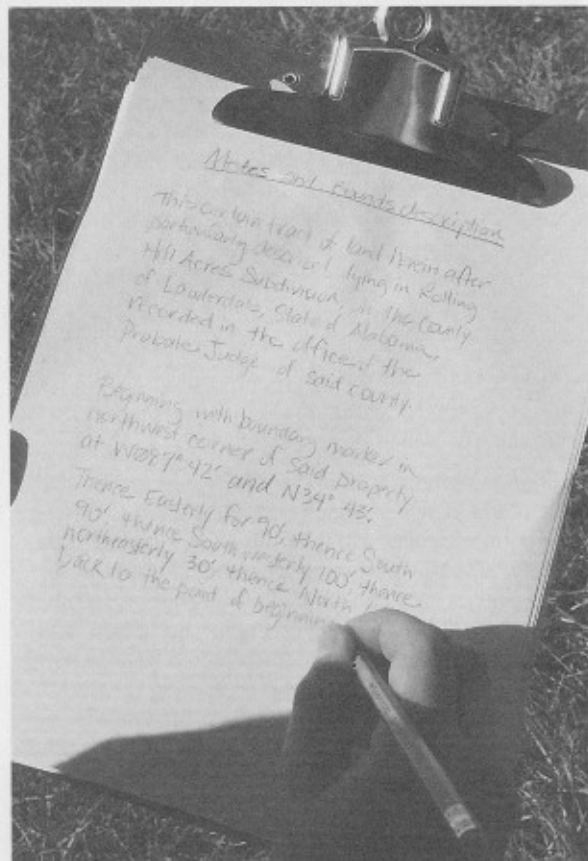 Metes and Bounds description
This certain tract of land herein after
particularly described lying in Rolling
Hill Acres Subdivision, in the County
of Lauderdale, State of Alabama,
recorded in the office of the
Probate Judge of said county.
Beginning with boundary marker in
northwest corner of said property
at W087° 42' and N34° 43'.
Thence Easterly for 90', thence South
90', thence Southwesterly 100', thence
northeasterly 30', thence North
back to the point of beginning